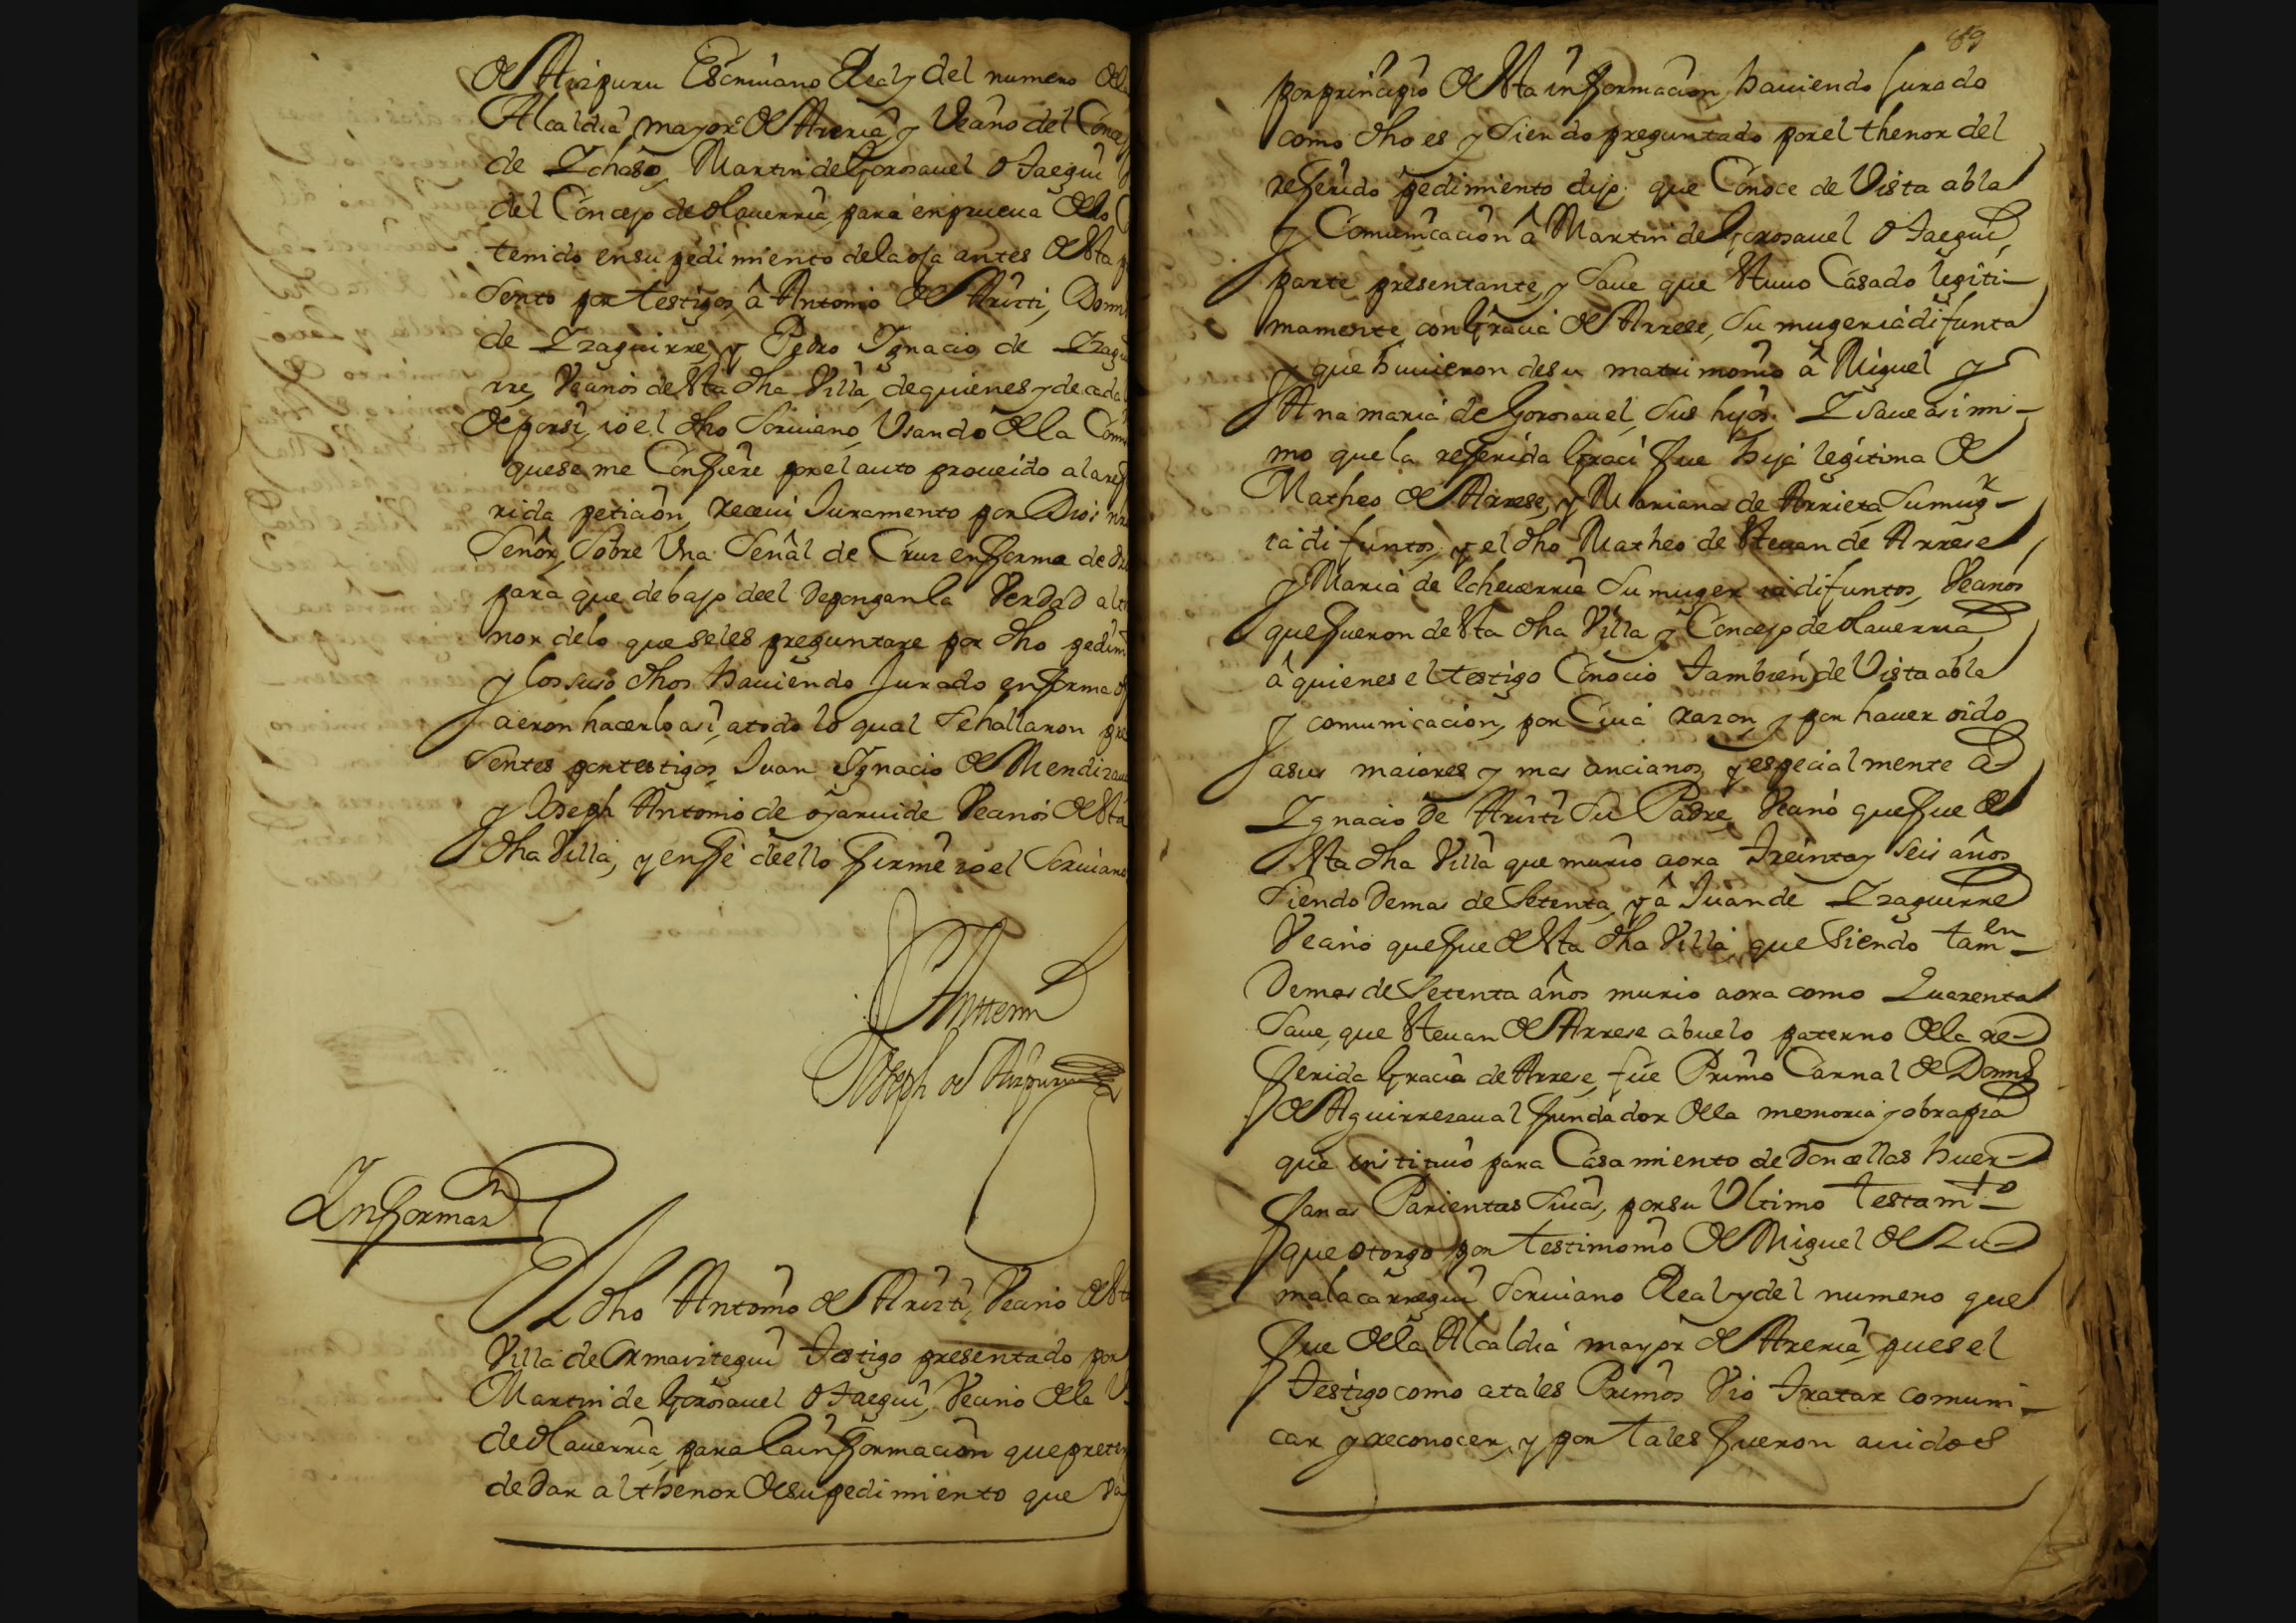 de Aizpuru Escriuano Real y del numero de la
Alcaldia mayor de Areria y Vecino del Conce
de Ichaso, Martin de Gorosauel Otaegui
del Concejo de olauerria, para en prueua de lo
tenido en su pedimiento de la oja antes de esta
sento por testigos, â Antonio de Aristi, Domi
de Izaguirre, y Pedro Ignacio de Izagui
rre, Vecinos de esta dha Villa, de quienes y de cada
de por si, io el dho Scriuano, Vsando de la Comi
que se me Confiere por el auto proueido a la refe
rida peticion, Receui Juramento por Dios nro
Señor, Sobre Vna Señal de Cruz en forma de dro
para que debajo de el Depongan la Verdad al te
nor de lo que se les preguntare por dho pedim
y los suso dhos hauiendo Jurado en forma of
cieron hacerlo asi, a todo lo qual se hallaron pre
sentes por testigos, Juan Ignacio de Mendizau
y Joseph Antonio de ojaruide Vecinos de esta
dha Villa, y en fe de ello firme io el Scriuano
Antemi
Joseph de Aizpuru
Informaz.on
El dho Antonio de Arizti, Vecino de esta
Villa de Ormaiztegui Testigo presentado por
Martin de Gorosauel Otaegui, Vecino de la V
de olauerria, para la informacion que preten
de Dar al thenor de su pedimiento que va
89
por principio de esta informacion, hauiendo Jurado
como dho es y Siendo preguntado por el thenor del
referido pedimiento dijo: que Conoce de Vista abla
y Comunicacion â Martin de Gorosauel Otaegui,
parte presentante, y Saue que estuuo Casado legiti-
mamente con Gracia de Arrese, Su muger iâ difunta
y que huuieron de su matrimonio â Miguel y
Ana maria de Gorosauel, Sus hijos. I Saue asi mis-
mo que la referida Graci fue hija legitima de
Matheo de Arrese, y Mariana de Arrieta, Su mug.r
ia difuntos, y el dho Matheo de Esteuan de Arrese
y Maria de Echeuerria Su muger ia difuntos, Vecinos
que fueron de esta dha Villa y Concejo de olauerria
â quienes el testigo Conocio Tambien de Vista abla
y comunicacion, por Cuia razon, y por hauer oido
a sus maiores y mas ancianos, y especialmente a
Ignacio de Aristi Su Padre, Vecino que fue de
esta dha Villa que murio aora Treinta y Seis años
Siendo Demas de Setenta, y â Juan de Izaguirre
Vecino que fue de esta dha Villa, que Siendo tam.en
Demas de Setenta años murio aora como Quarenta
Saue, que Esteuan de Arrese abuelo paterno de la re
ferida Gracia de Arrese, fue Primo Carnal de Domg
de Aguirrezaual fundador de la memoria y obra pia
que instituio para Casamiento de Doncellas huer
fanas Parientas Suias, por su Vltimo testam.to
que otorgo por testimonio de Miguel de Zu
malacarregui Scriuano Real y del numero que
fue de la Alcaldia mayor de Areria, pues el
Testigo como a tales Primos Vio Tratar comuni-
car y reconocer, y por tales fueron auidos